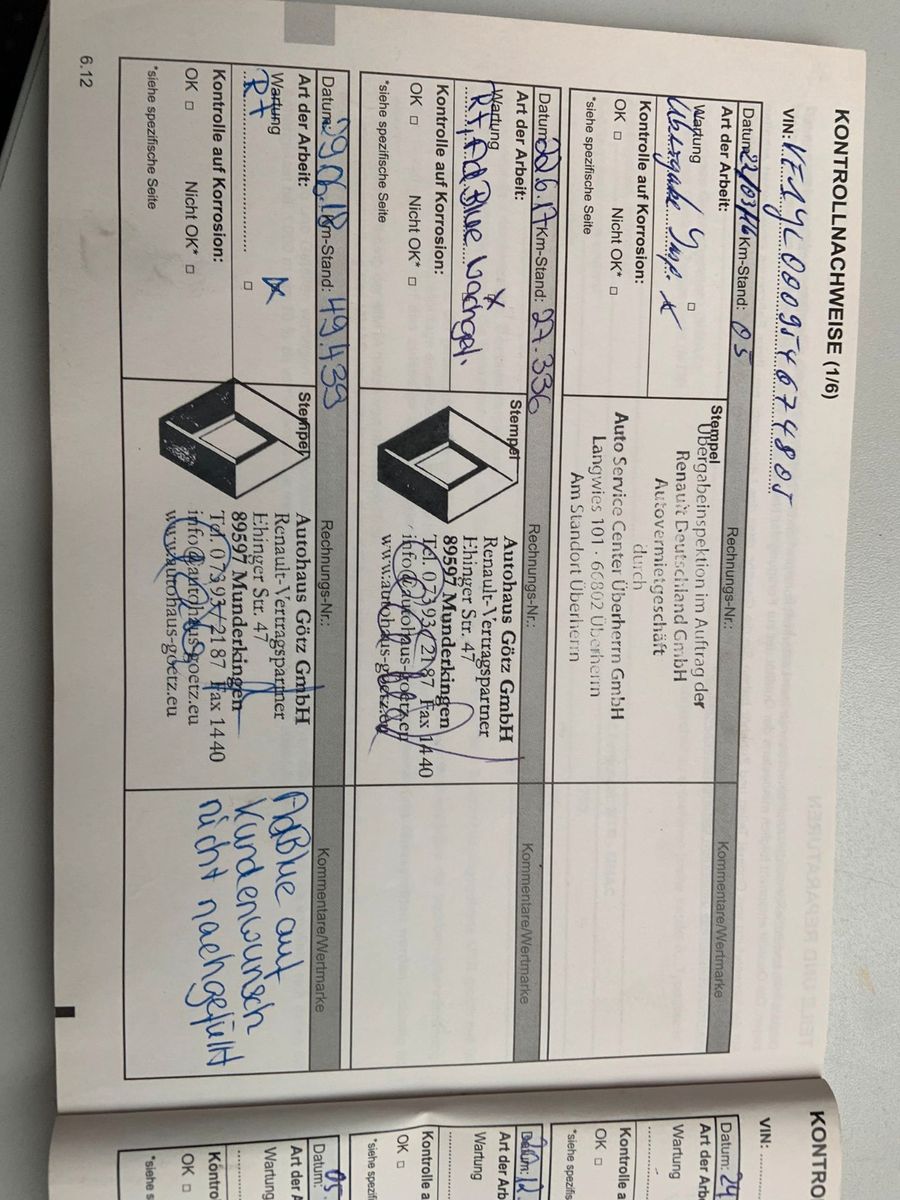 KONTROLLNACHWEISE (1/6)
VIN: VF1JYC000954674805
Datum: 22/03/16 Km-Stand: 05 Rechnungs-Nr.: Kommentare/Wertmarke
Art der Arbeit:
Wartung □
Übergabe Insp. x
Kontrolle auf Korrosion:
OK □ Nicht OK* □
*siehe spezifische Seite
Stempel
Übergabeinspektion im Auftrag der
Renault Deutschland GmbH
Autovermietgeschäft
durch
Auto Service Center Überherrn GmbH
Langwies 101 · 66802 Überherrn
Am Standort Überherrn
Datum: 22.6.17 Km-Stand: 27.336 Rechnungs-Nr.: Kommentare/Wertmarke
Art der Arbeit:
Wartung x
RT, Ad Blue nachgef.
Kontrolle auf Korrosion:
OK □ Nicht OK* □
*siehe spezifische Seite
Stempel
Autohaus Götz GmbH
Renault-Vertragspartner
Ehinger Str. 47
89597 Munderkingen
Tel. 07393/2187 Fax 1440
info@autohaus-goetz.eu
www.autohaus-goetz.eu
Datum: 29.06.18 Km-Stand: 49.439 Rechnungs-Nr.: Kommentare/Wertmarke
Art der Arbeit:
Wartung x
RT □
Kontrolle auf Korrosion:
OK □ Nicht OK* □
*siehe spezifische Seite
Stempel
Autohaus Götz GmbH
Renault-Vertragspartner
Ehinger Str. 47
89597 Munderkingen
Tel. 07393/2187 Fax 1440
info@autohaus-goetz.eu
www.autohaus-goetz.eu
AdBlue auf
Kundenwunsch
nicht nachgefüllt
6.12
KONTRO
VIN:
Datum:
Art der A
Wartung
Kontrolle a
OK □
*siehe spezifis
Datum:
Art der Arb
Wartung
Kontrolle a
OK □
*siehe spezifi
Datum: 05
Art der A
Wartung
Kontro
OK □
*siehe s